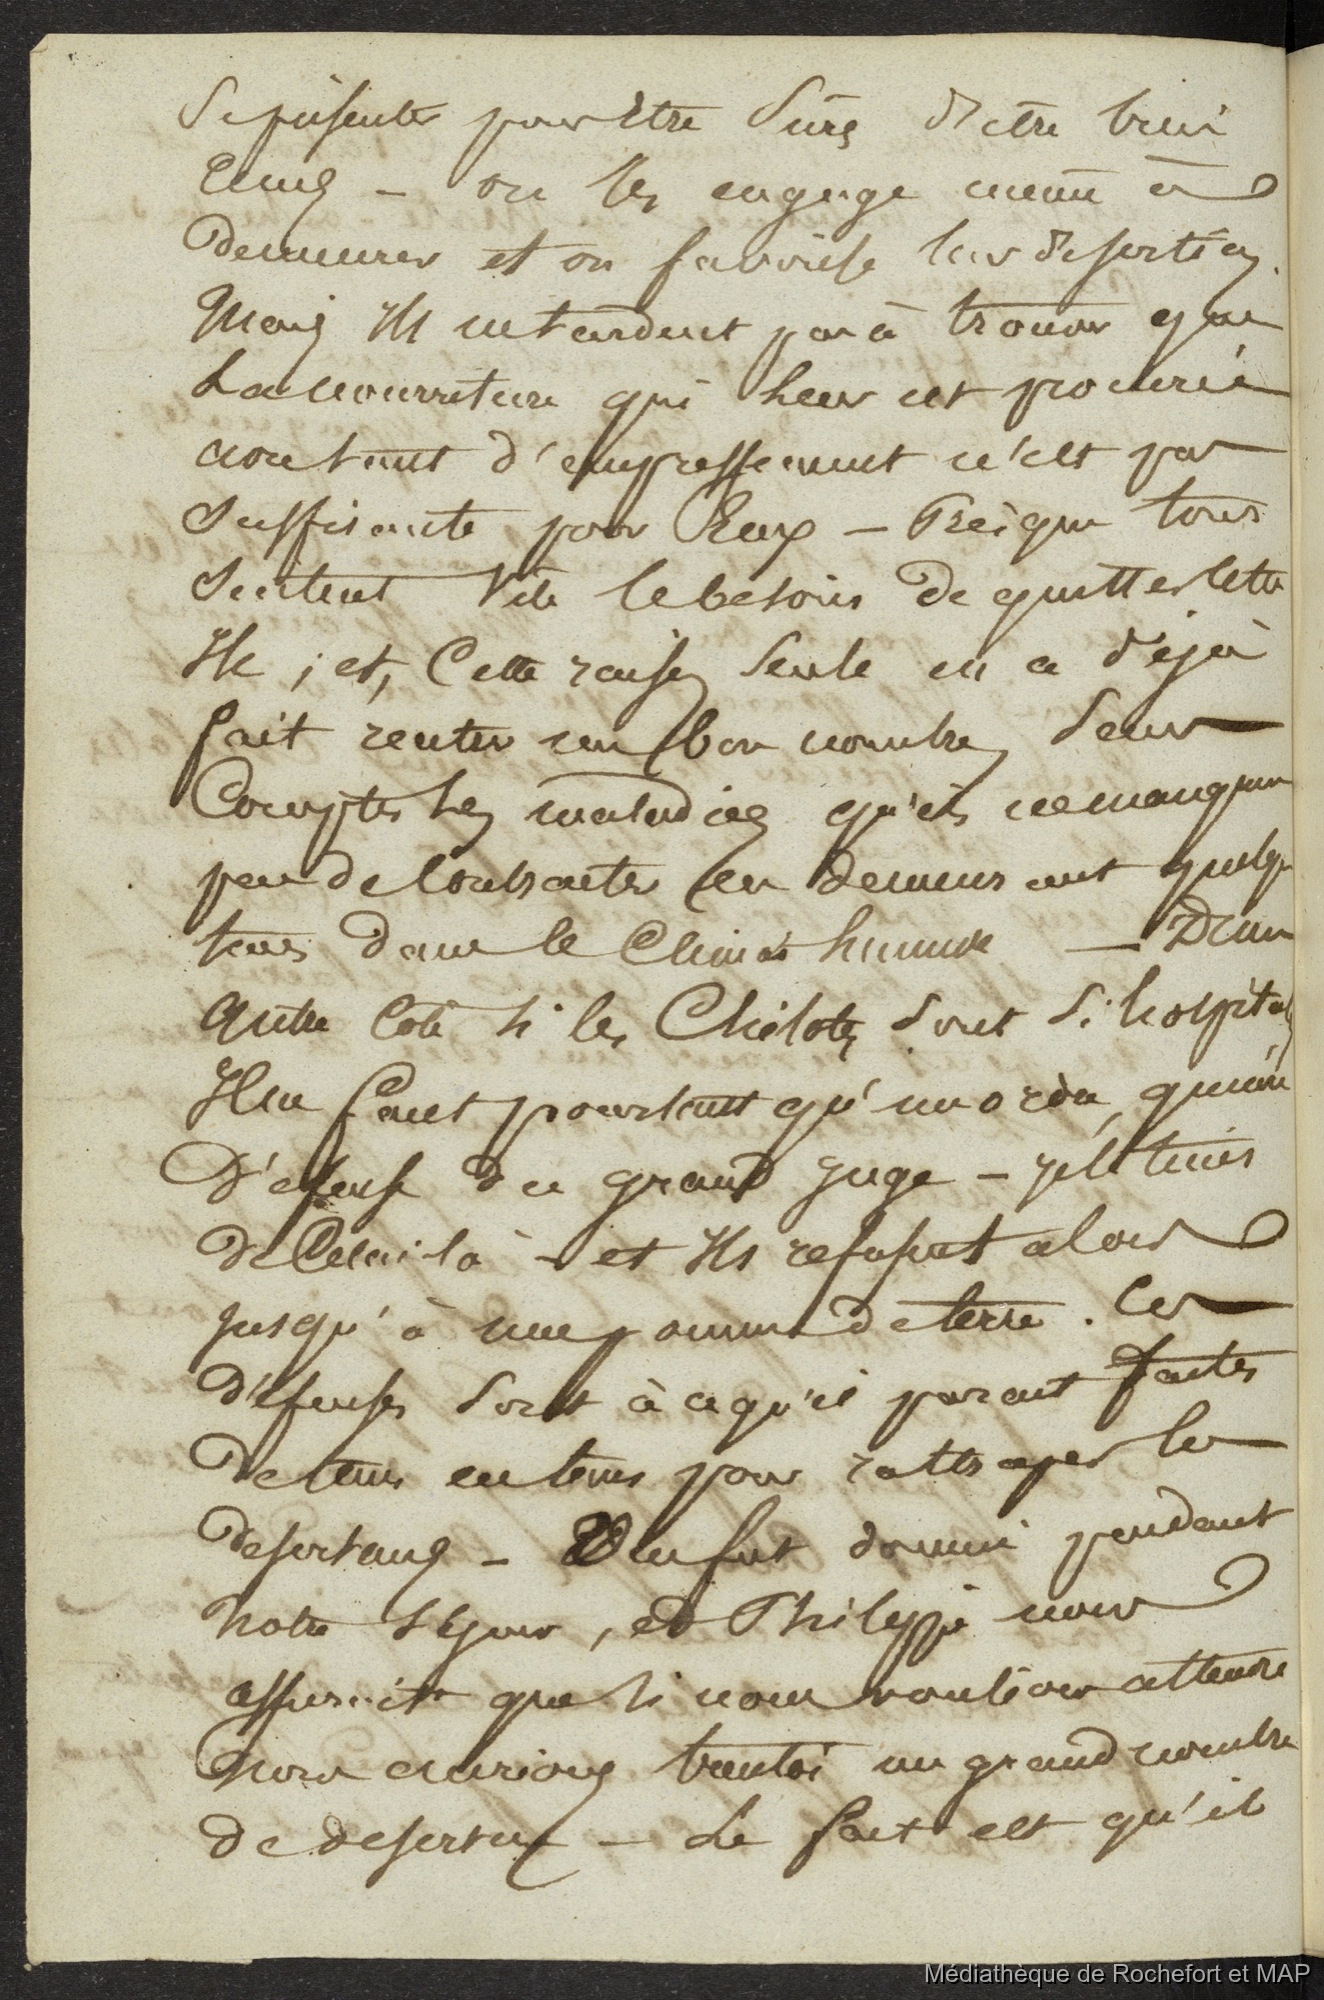 Se présenter pour Etre Sûrs d'être bien
Reçus — on les engage même à
Demeurer et on favorise leur desertion.
Mais Ils ne tardent pas à trouver que
La nourriture qui Leur est procurée
avec tant d'empressement n'est pas
Suffisante pour Eux — Presque tous
Sentent Vite le besoin De quitter Cette
Ile ; et, Cette raison Seule en a déjà
fait rentrer un bon nombre, Sans
Compter Les maladies qu'ils ne manquent
pas de Contracter en demeurant quelque
tems dans le Climat humide — D'un
autre Coté si les Chilotes Sont Si hospitaliers
Il ne faut pourtant qu'un ordre, qu'une
Défense du grand Juge —
De Celui-là — et Ils refusent alors
jusqu'à une pomme de terre. Ces
défenses Sont à ce qu'il parait faites
De tems en tems pour rattraper les
Desertans — Il en fut donné pendant
Notre Séjour, et Philippi nous
assurait que si nous voulions attendre
Nous aurions bientôt un grand nombre
de deserteurs — Le fait est qu'il
Médiathèque de Rochefort et MAP